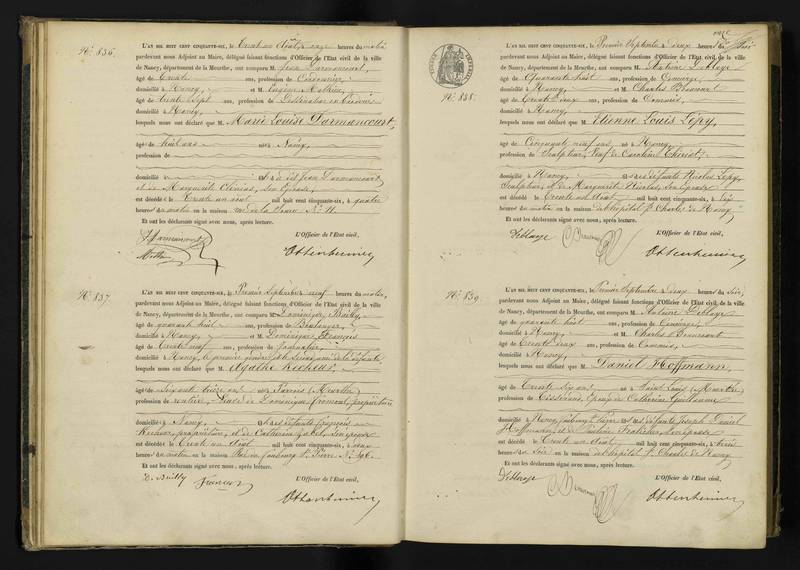 No. 836.
L'AN MIL HUIT CENT CINQUANTE-SIX, le Trente un Août, à onze heures du matin
pardevant nous Adjoint au Maire, délégué faisant fonctions d'Officier de l'Etat civil de la ville
de Nancy, département de la Meurthe, ont comparu M. Jean Darmancourt,
âgé de Trente ans, profession de Cordonnier,
domicilié à Nancy, et M. Eugène Mathieu,
âgé de trente sept ans, profession de Dessinateur en
domicilié à Nancy,
lesquels nous ont déclaré que M. Marie Louise Darmancourt,
âgé de huit ans né à Nancy,
profession de
domicilié à et de Jean Darmancourt
et de Marguerite son Epouse,
est décédé le Trente un août mil huit cent cinquante-six, à quatre
heures du matin en la maison No. 11.
Et ont les déclarants signé avec nous, après lecture.
L'Officier de l'Etat civil,
JDarmancourt
Mathieu
Ottenheimer
No. 837.
L'AN MIL HUIT CENT CINQUANTE-SIX, le Premier Septembre à neuf heures du matin,
pardevant nous Adjoint au Maire, délégué faisant fonctions d'Officier de l'Etat civil de la ville
de Nancy, département de la Meurthe, ont comparu M. Dominique Bailly,
âgé de quarante huit ans, profession de Boulanger,
domicilié à Nancy, et M. Dominique François
âgé de Trente neuf ans, profession de
domicilié à Nancy, le premier gendre et le second ami de la défunte
lesquels nous ont déclaré que M. Agathe Recheur,
âgé de Soixante treize ans né à (Meurthe)
profession de rentière, Veuve de Dominique propriétaire
domicilié à Nancy et de défunts François
Recheur, propriétaire, et de Catherine son épouse
est décédé le Trente un Août mil huit cent cinquante-six, à
heures du matin en la maison Rue du faubourg St. Pierre No.
Et ont les déclarants signé avec nous, après lecture.
L'Officier de l'Etat civil,
D. Bailly
François
Ottenheimer
No. 838.
L'AN MIL HUIT CENT CINQUANTE-SIX, le Premier Septembre à deux heures du Soir
pardevant nous Adjoint au Maire, délégué faisant fonctions d'Officier de l'Etat civil de la ville
de Nancy, département de la Meurthe, ont comparu M. Antoine Leblaye
âgé de Quarante huit ans, profession de Concierge,
domicilié à Nancy, et M. Charles
âgé de Trente deux ans, profession de Commis,
domicilié à Nancy,
lesquels nous ont déclaré que M. Etienne Louis Lépy,
âgé de Cinquante neuf ans né à Nancy,
profession de Sculpteur, Veuf de Caroline
domicilié à Nancy, et de défunts Nicolas Lépy,
Sculpteur, et de Marguerite Nicolas, son épouse
est décédé le Trente un Août mil huit cent cinquante-six, à
heures du matin en la maison de l'hôpital St. Charles de Nancy
Et ont les déclarants signé avec nous, après lecture.
L'Officier de l'Etat civil,
Leblaye
Ottenheimer
No. 839.
L'AN MIL HUIT CENT CINQUANTE-SIX, le Premier Septembre à deux heures du Soir,
pardevant nous Adjoint au Maire, délégué faisant fonctions d'Officier de l'Etat civil de la ville
de Nancy, département de la Meurthe, ont comparu M. Antoine Leblaye
âgé de quarante huit ans, profession de Concierge,
domicilié à Nancy, et M. Charles
âgé de Trente deux ans, profession de Commis,
domicilié à Nancy,
lesquels nous ont déclaré que M. Daniel Hoffmann,
âgé de Trente six ans né à Saint Louis (Meurthe)
profession de Tisserand, Epoux de Catherine Guillaume
domicilié à Nancy, faubourg St. Pierre et de défunts Joseph Daniel
Hoffmann, et de son épouse
est décédé le Trente un Août mil huit cent cinquante-six, à
heures du Soir en la maison de l'hôpital St. Charles de Nancy
Et ont les déclarants signé avec nous, après lecture.
L'Officier de l'Etat civil,
Leblaye
Ottenheimer